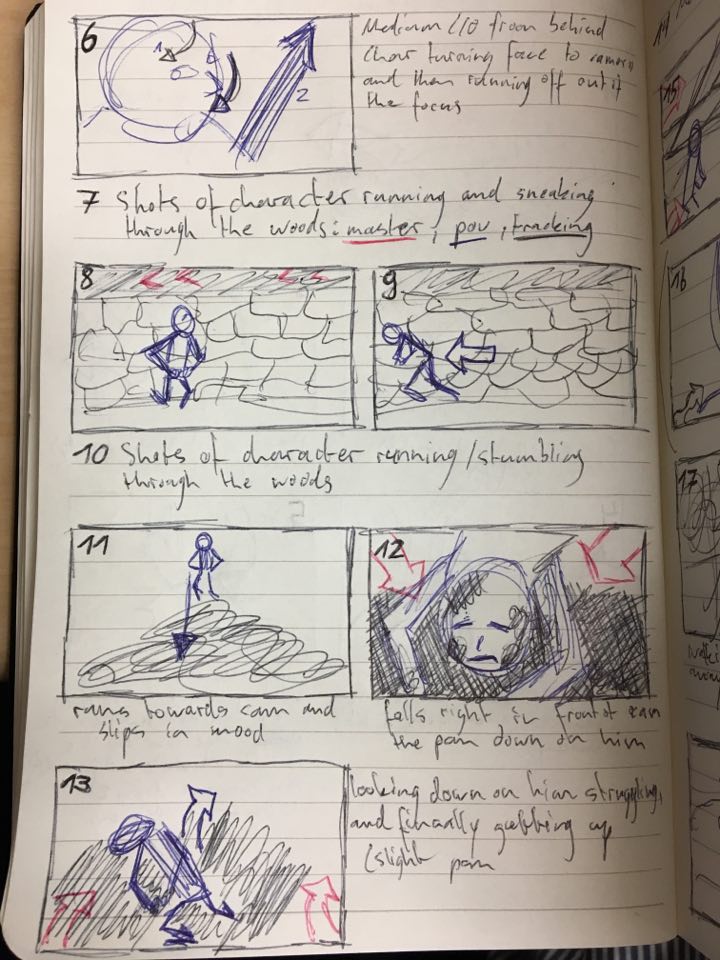 6
1
2
Medium C/O from behind
Char turning face to camera
and then running off out of
the focus
7 Shots of character running and sneaking
through the woods: master, pov, tracking
8
9
10 Shots of character running/stumbling
through the woods
11
12
runs towards cam and
slips in mood
falls right in front of cam
the pan down on him
13
looking down on him struggling,
and finally getting up
(slight pan
15
16
17